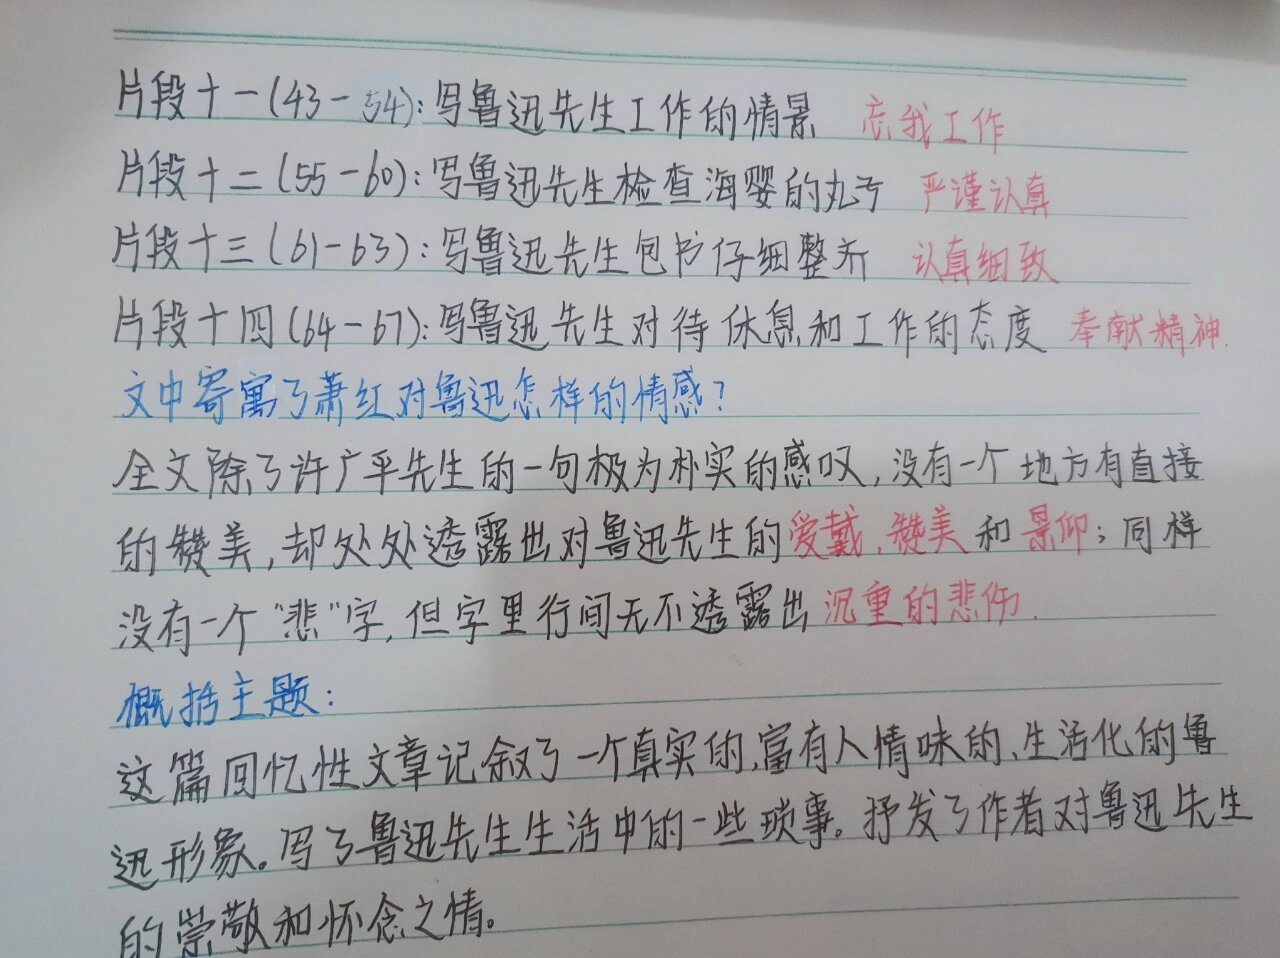 片段十一(43-54):写鲁迅先生工作的情景 忘我工作
片段十二(55-60):写鲁迅先生检查海婴的丸子 严谨认真
片段十三(61-63):写鲁迅先生包书仔细整齐 认真细致
片段十四(64-67):写鲁迅先生对待休息和工作的态度 奉献精神.
文中寄寓了萧红对鲁迅怎样的情感?
全文除了许广平先生的一句极为朴实的感叹,没有一个地方有直接
的赞美,却处处透露出对鲁迅先生的爱戴、赞美和景仰;同样
没有一个“悲”字,但字里行间无不透露出沉重的悲伤.
概括主题:
这篇回忆性文章记叙了一个真实的、富有人情味的、生活化的鲁
迅形象。写了鲁迅先生生活中的一些琐事。抒发了作者对鲁迅先生
的崇敬和怀念之情。